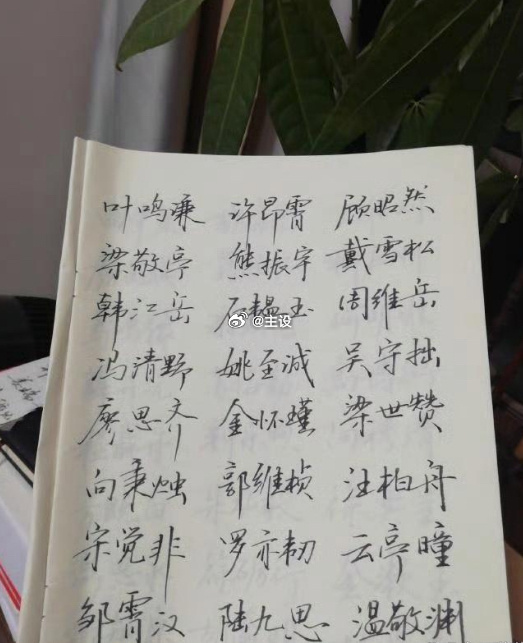 叶鸣谦 许昂霄 顾昭然
梁敬亭 熊振宇 戴雪松
韩江岳 石韫玉 周维岳
@主设
冯清野 姚至诚 吴守拙
廖思齐 金怀瑾 梁世赞
向秉烛 郭维桢 汪柏舟
宗觉非 罗亦韧 云亭瞳
邹霄汉 陆九思 温敬渊